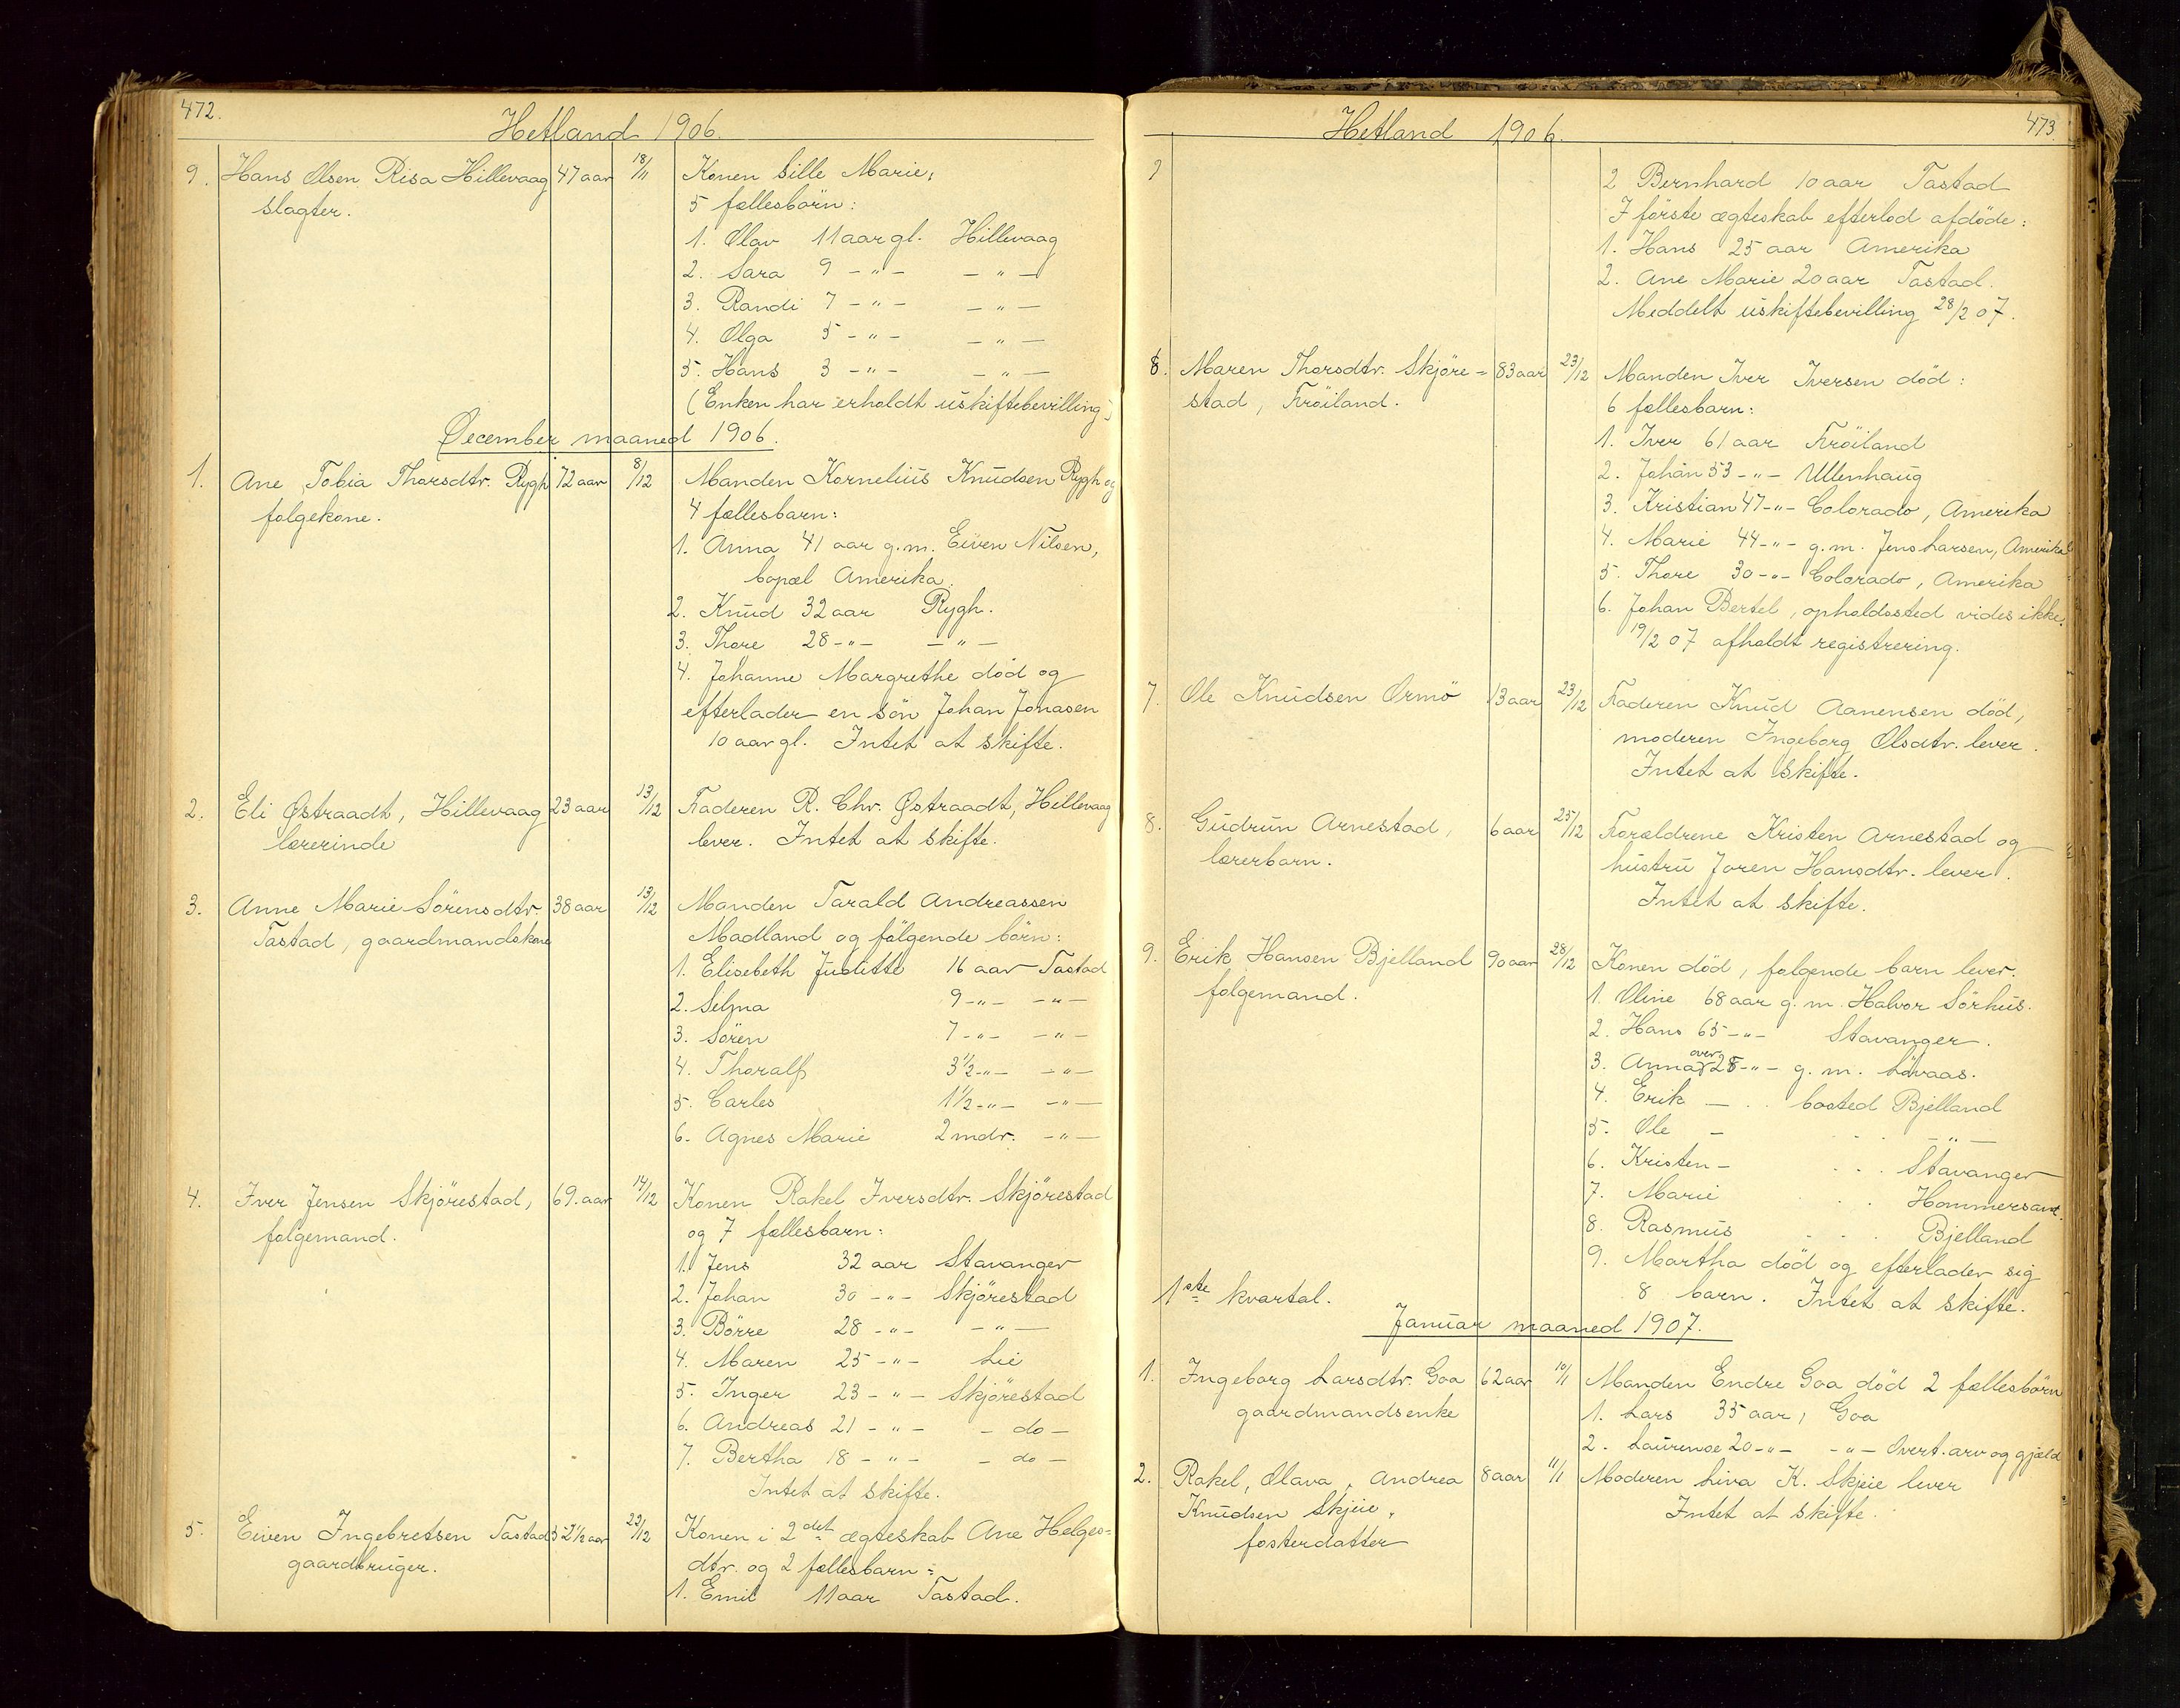 472.
Hetland 1906.
9. Hans Olsen Risa Hillevaag 47 aar 18/11 Konen Sille Marie,
slagter. 5 fællesbörn:
1. Olav 11 aar gl. Hillevaag
2. Sara 9 -"- -"-
3. Randi 7 -"- -"-
4. Olga 5 -"- -"-
5. Hans 3 -"- -"-
(Enken har erholdt uskiftebevilling.)
December maaned 1906.
1. Ane Tobia Thorsdtr. Rygh 72 aar 8/12 Manden Kornelius Knudsen Rygh og
folgekone. 4 fællesbarn:
1. Anna 41 aar g.m. Eiven Nilsen,
bopæl Amerika.
2. Knud 32 aar Rygh.
3. Thore 28 -"- -"-
4. Johanne Margrethe död og
efterlader en sön Johan Jonasen
10 aar gl. Intet at skifte.
2. Eli Østraadt, Hillevaag 23 aar 13/12 Faderen R. Chr. Østraadt, Hillevaag
lærerinde lever. Intet at skifte.
3. Anne Marie Sörensdtr. 38 aar 13/12 Manden Tarald Andreassen
Tastad, gaardmandskone Madland og fölgende börn:
1. Elisebeth Juditte 16 aar Tastad
2. Selma 9 -"- -"-
3. Sören 7 -"- -"-
4. Thoralf 3½ -"- -"-
5. Carles 1½ -"- -"-
6. Agnes Marie 2 mdr. -"-
4. Iver Jensen Skjörestad, 69. aar 14/12 Konen Rakel Iversdtr. Skjörestad
folgemand. og 7 fællesbarn:
1. Jens 32 aar Stavanger
2. Johan 30 -"- Skjörestad
3. Börre 28 -"- -"-
4. Maren 25 -"- Lie
5. Inger 23 -"- Skjörestad
6. Andreas 21 -"- - do -
7. Bertha 18 -"- - do -
Intet at skifte.
5. Eiven Ingebretsen Tastad 52½ aar 22/12 Konen i 2det ægteskab Ane Helges=
gaardbruger. dtr. og 2 fællesbarn:
1. Emil 11 aar Tastad.
473
Hetland 1906.
2 Bernhard 10 aar Tastad
I förste ægteskab efterlod afdöde:
1. Hans 25 aar Amerika
2. Ane Marie 20 aar Tastad.
Meddelt uskiftebevilling 28/2 07.
6. Maren Thorsdtr. Skjöre= 83 aar 23/12 Manden Iver Iversen död:
stad, Fröiland. 6 fællesbarn:
1. Iver 61 aar Fröiland
2. Johan 53 -"- Ullenhaug
3. Kristian 47 -"- Colorado, Amerika
4. Marie 44 -"- g.m. Jens Larsen, Amerika
5. Thore 30 -"- Colorado, Amerika
6. Johan Bertel, opholdssted vides ikke.
19/2 07 afholdt registrering.
7. Ole Knudsen Ormö 13 aar 23/12 Faderen Knud Aanensen död,
moderen Ingeborg Olsdtr. lever.
Intet at skifte.
8. Gudrun Arnestad, 6 aar 25/12 Forældrene Kristen Arnestad og
lærerbarn. hustru Joren Hansdtr. lever.
Intet at skifte.
9. Erik Hansen Bjelland 90 aar 28/12 Konen död, folgende barn lever.
folgemand. 1. Oline 68 aar g.m. Halvor Sörhus.
2. Hans 65 -"- Stavanger.
3. Anna over 25 -"- g.m. Lövaas.
4. Erik - . . bosted Bjelland
5. Ole - . . . -"-
6. Kristen - . . . Stavanger
7. Marie . . Hommersant.
8. Rasmus . . . Bjelland
9. Martha död og efterlader sig
8 barn. Intet at skifte.
1ste kvartal.
Januar maaned 1907.
1. Ingeborg Larsdtr. Goa 62 aar 10/1 Manden Endre Goa död 2 fællesbörn
gaardmandsenke 1. Lars 35 aar, Goa
2. Laurense 20 -"- -"- Overt. arv og gjæld
2. Rakel, Olava, Andrea 8 aar 11/1 Moderen Liva K. Skjeie lever
Knudsen Skjeie, Intet at skifte.
fosterdatter